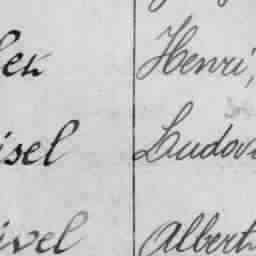 lek Henri,
isel Ludovi
ivel Albert